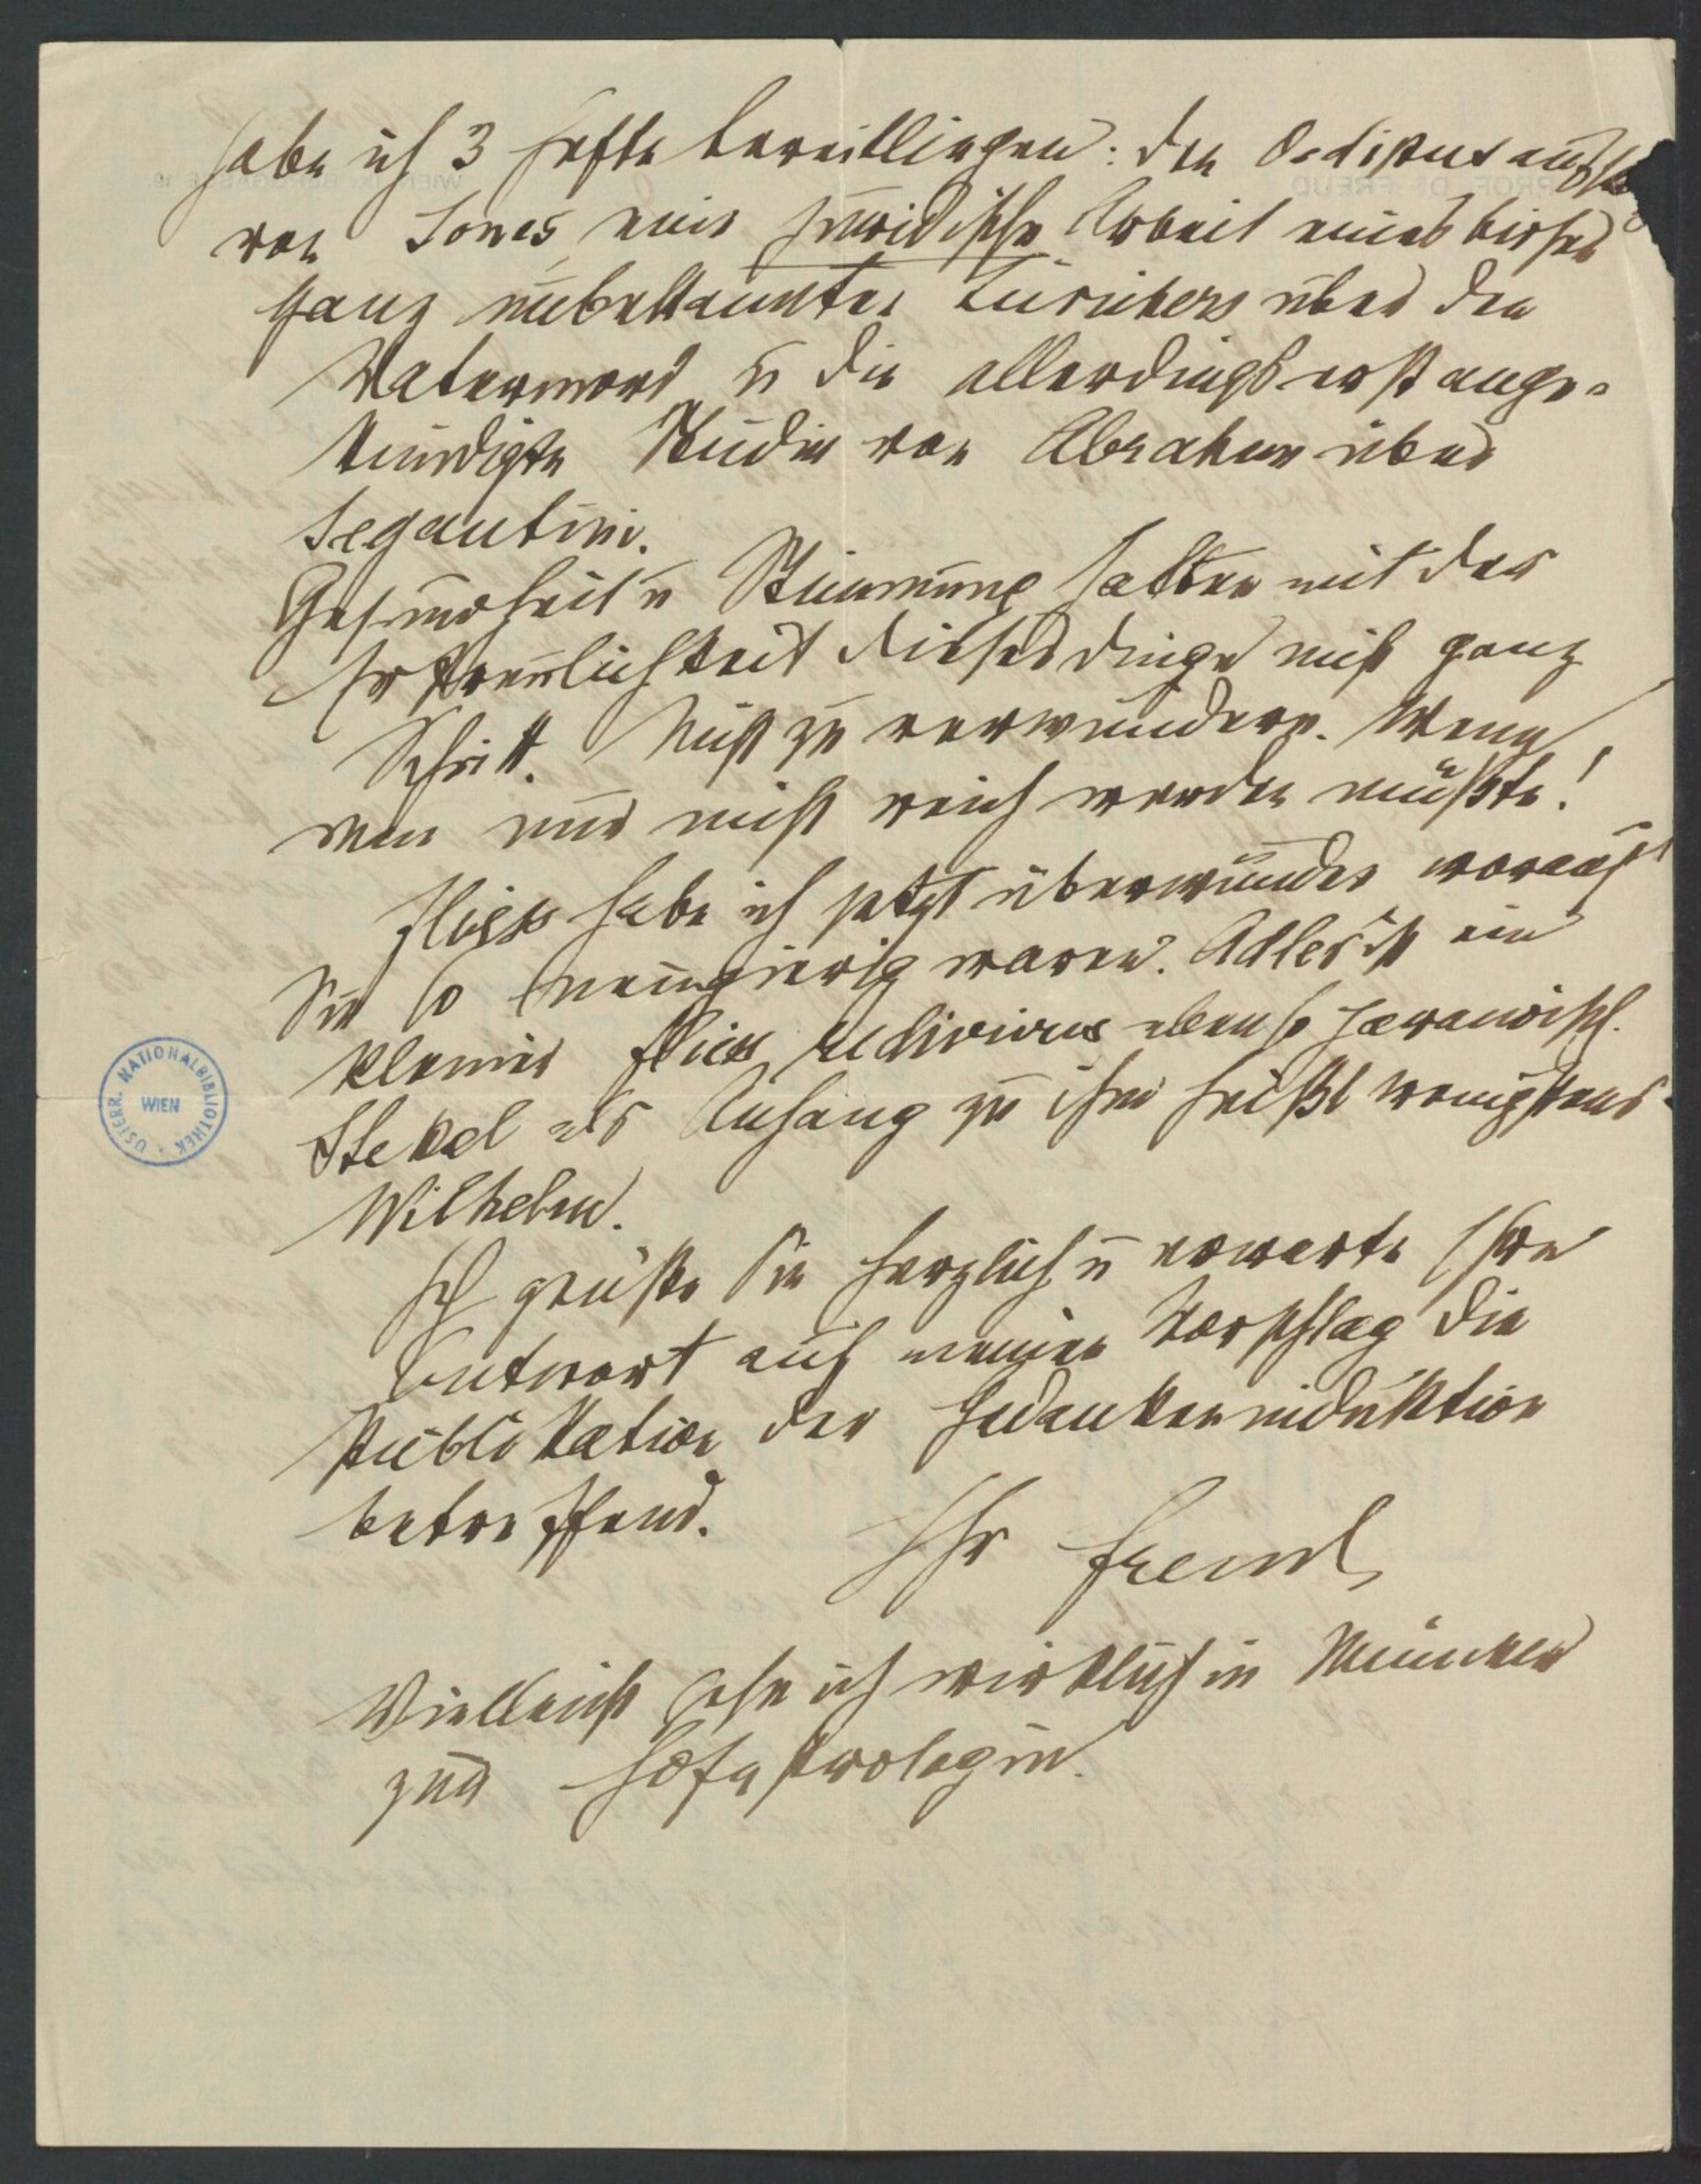 habe ich 3 Hefte bereitliegen: den Oedipusaufsatz
von Jones, eine juridische Arbeit eines bisher
ganz unbekannten Zürichers über den
Vatermord u die allerdings erst ange-
kündigte Studie von Abraham über
Segantini.
Gesundheit u Stimmung halten mit der
Erfreulichkeit dieser Dinge nicht ganz
Schritt. Nicht zu verwundern. Wenn
man nur nicht reich werden müßte!
Fliess habe ich jetzt überwunden worauf
Sie so neugierig waren. Adler ist ein
kleiner Fliess redivivus ebenso paranoisch.
Stekel als Anhang zu ihm heißt wenigstens
Wilhelm.
Ich grüße Sie herzlich u erwarte Ihre
Antwort auf meinen Vorschlag die
Publikation der Gedankeninduktion
betreffend.
Ihr Freud
Vielleicht gehe ich wirklich in München
zur Hofastrologin.
ÖSTERR. NATIONALBIBLIOTHEK
WIEN